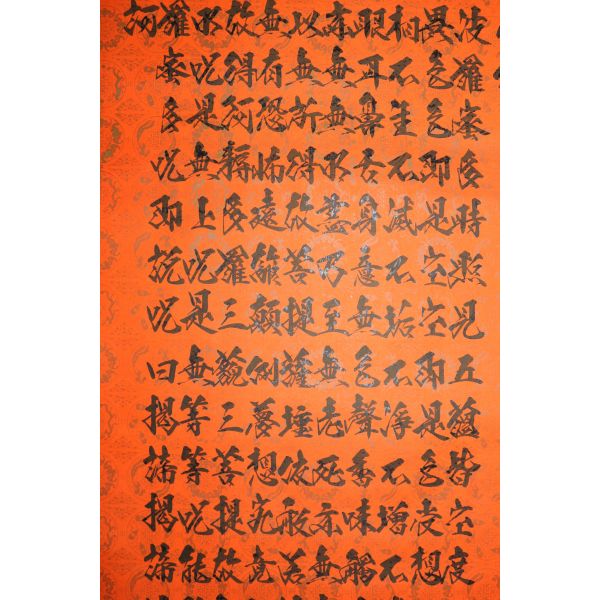 波羅蜜多時照見五蘊皆空度
異色色即是空空即是色受想
相不生不滅不垢不淨不增不
眼耳鼻舌身意無色聲香味觸
亦無無明盡乃至無老死亦無
以無所得故菩提薩埵依般若
無有恐怖遠離顛倒夢想究竟
故得阿耨多羅三藐三菩提故
明呪是無上呪是無等等呪能
羅蜜多呪即說呪曰揭諦揭諦
訶